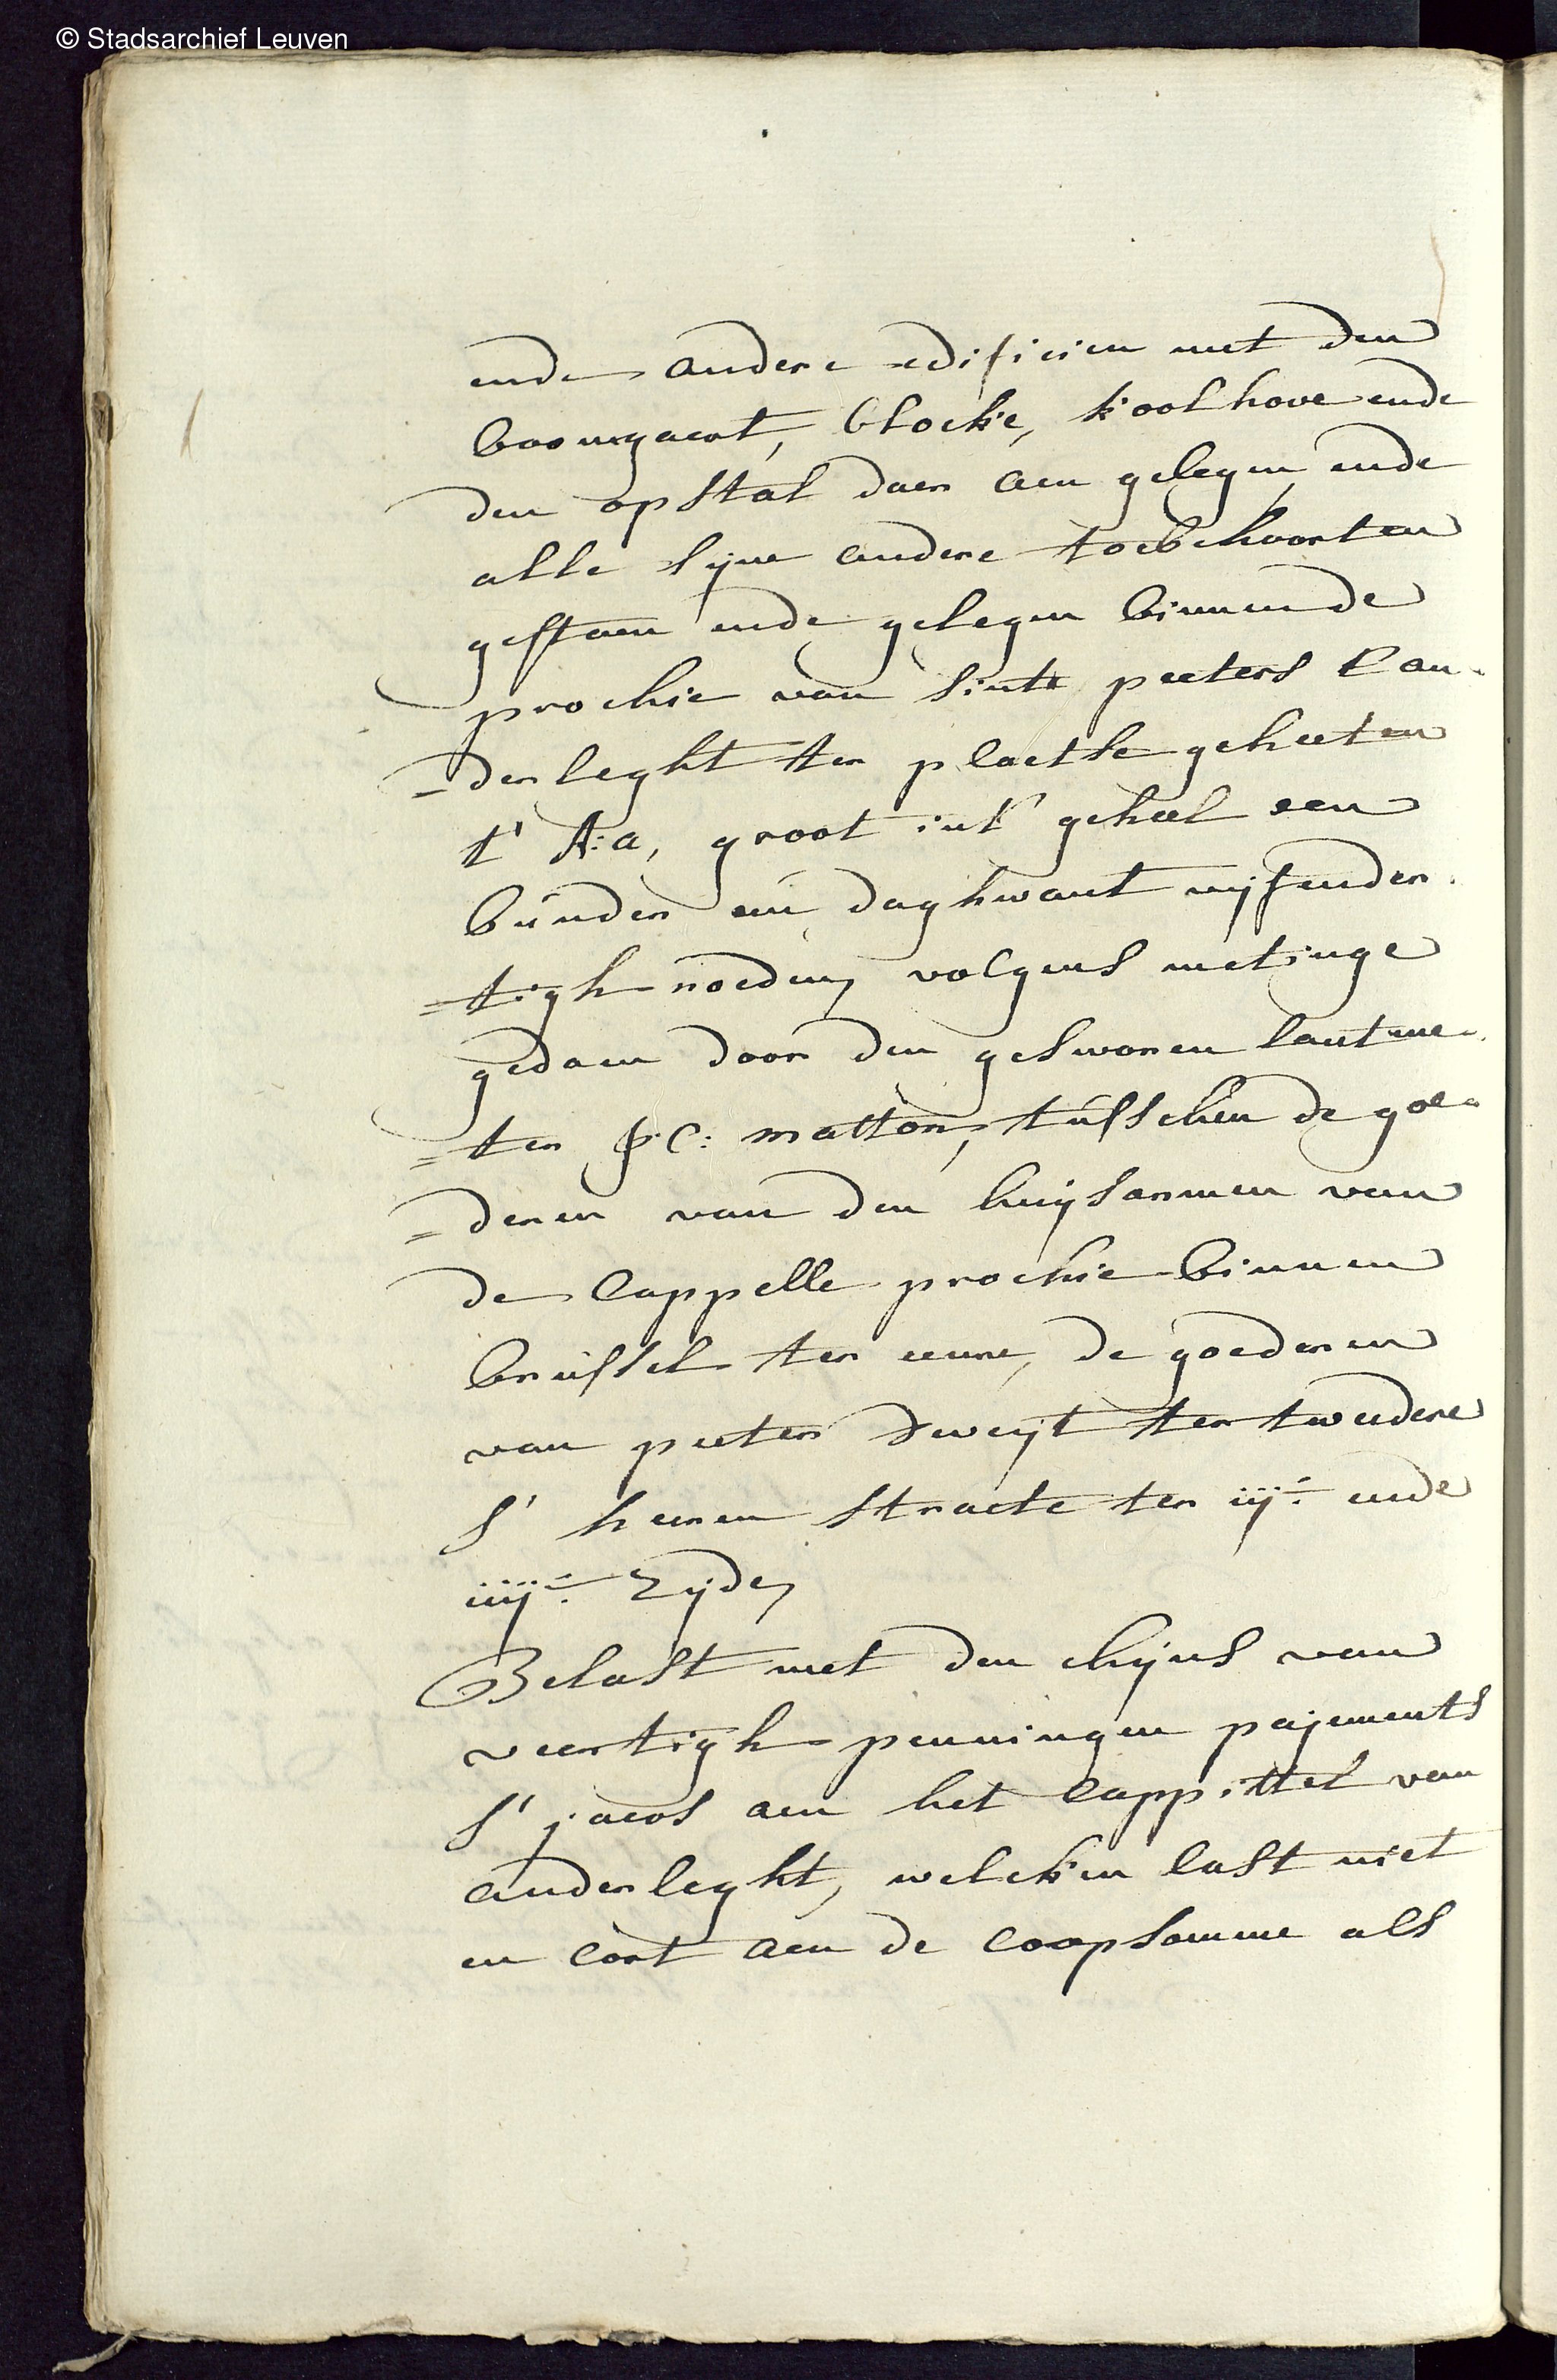 © Stadsarchief Leuven
ende andere edificien met den
boomgaert, blocke, koolhove ende
den opstal daer aen gelegen, ende
alle sijne andere toebehoorten
gestaen ende gelegen binnen de
prochie van sinte peeters l'an-
=derleght ter plaetse geheeten
t' A:a, groot int' geheel een
bunder een daghwant vijfender
=tigh roeden, volgens metinge
gedaen door den geswoeren lantme-
=ter J: C: matton, tusschen de goe-
=deren van den huijsarmen van
de Cappelle prochie binnen
brussel ter eenre, de goederen
van peeter Dweijt ter tweedere
s' heeren straete ter iij:e ende
iiij:e Zijde,
Belast met den chijns van
veertigh penningen paijements
s' jaers aen het Cappittel van
anderleght, welcken last niet
en cort aen de coopsomme als